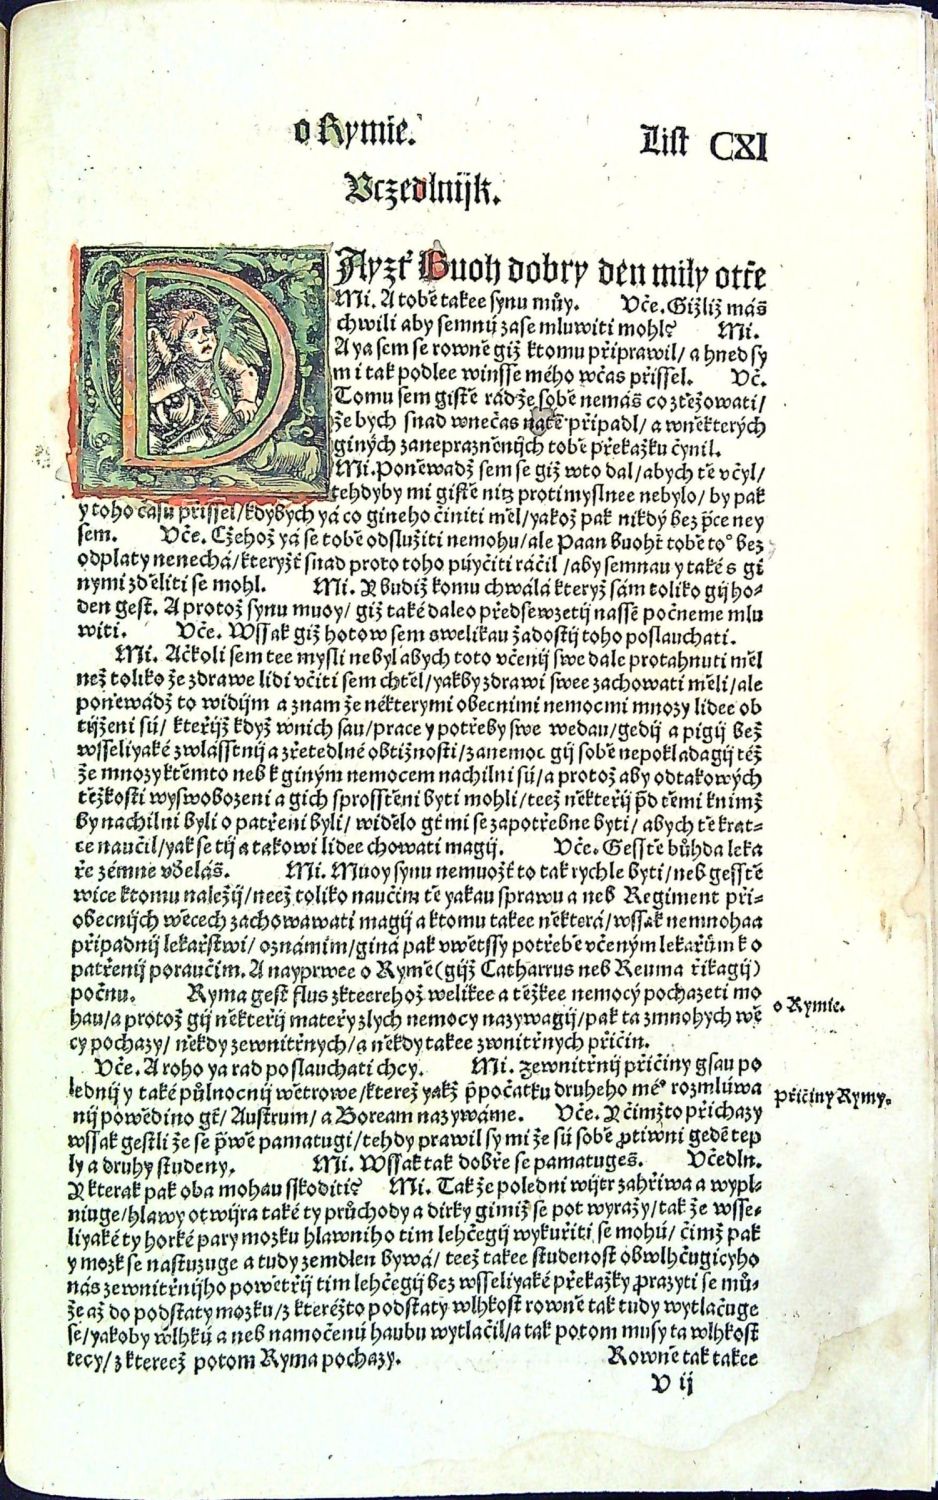 o Rymie.
List CXI
Vczedlnijk.
DAyzť Buoh dobry den mily otče
Mi. A tobě takee synu můy. Vče. Gižliž máš
chwili aby semnij zase mluwiti mohl? Mi.
A ya sem se rowně giž ktomu připrawil/ a hned sy
mi tak podlee winsse mého wčas přissel. Vč.
Tomu sem gistě rád že sobě nemáš co ztěžowati/
že bych snad wnečas natě připadl/ a wněkterých
giných zaneprazněnijch tobě překažku čynil.
Mi. Poněwadž sem se giž wto dal/ abych tě včyl/
tehdyby mi gistě nitz protimyslnee nebylo/ by pak
y toho času přissel/ kdybych yá co gineho činiti měl/ yakož pak nikdý bez p̄ce ney
sem. Vče. Cžehož yá se tobě odslužiti nemohu/ ale Paan buohť tobě to° bez
odplaty nenechá/ kteryžť snad proto toho púyčiti ráčil/ aby semnau y také s gi
nymi zděliti se mohl. Mi. Y budiž komu chwála kteryž sám toliko gij ho⸗
den gest. A protož synu muoy/ giž také daleo předsewzetij nassě počneme mlu
witi. Vče. Wssak giž hotow sem swelikau žadostij toho poslauchati.
Mi. Ačkoli sem tee mysli nebyl abych toto včenij swe dale protahnuti měl
než toliko že zdrawe lidi včiti sem chtěl/ yakby zdrawi swee zachowati měli/ ale
poněwádž to widijm a znam že některymi obecnimi nemocmi mnozy lidee ob
tijženi sú/ kteřijž když wnich sau/ prace y potřeby swe wedau/ gedij a pigij bež
wsseliyaké zwlásstnij a zřetedlné obtižnosti/ zanemoc gij sobě nepokladagij též
že mnozy ktěmto neb k giným nemocem nachilni sú/ a protož aby odtakowých
těžkosti wyswobozeni a gich sprosstěni byti mohli/ teež někteřij p̄d těmi knimž
by nachilni byli opatřeni byli/ widělo gť mi se zapotřebne byti/ abych tě krat⸗
ce naučil/ yak se tij a takowi lidee chowati magij. Vče. Gesstě bůhda leka
ře zémne vděláš. Mi. Muoy synu nemuožť to tak rychle byti/ neb gesstě
wice ktomu naležij/ neež toliko naučim tě yakau sprawu a neb Regiment při⸗
obecnijch wěcech zachowawati magij a ktomu takee některá/ wssak nemnohaa
připadnij lekařstwi/ oznámim/ giná pak vwětssy potřebě včeným lekařům k o
patřenij poraučim. A nayprwee o Rymě (gijž Catharrus neb Reuma řikagij)
počnu. Ryma gest flus zkteerehož welikee a těžkee nemocý pochazeti mo
hau/ a protož gij někteřij mateřy zlych nemocy nazywagij/ pak ta zmnohych wě
cy pochazy/ někdy zewnitřnych/ a někdy takee zwnitřnych přičin.
o Rymie.
Vče. A roho ya rad poslauchati chcy. Mi. Zewnitřnij přičiny gsau po
lednij y také půlnocnij wětrowe/ kterež yakž p̄počatku druheho mé° rozmlúwa
nij powědino gť/ Austrum/ a Boream nazywáme. Vče. Y čimžto přichazy
Přičiny Rymy.
wssak gestli že se p̄wě pamatugi/ tehdy prawil sy mi že sú sobě ꝓtiwni geden tep
ly a druhy studeny. Mi. Wssak tak dobře se pamatugeš. Včedln.
Y kterak pak oba mohau sskoditi? Mi. Tak že poledni wijtr zahřiwa a wypl⸗
niuge/ hlawy otwijra také ty průchody a dirky gimiž se pot wyražy/ tak že wsse⸗
liyaké ty horké pary mozku hlawniho tim lehčegij wykuřiti se mohú/ čimž pak
y mozk se nastuzuge a tudy zemdlen bywá/ teež takee studenost obwlhčugicyho
nás zewnitřnijho powětřij tim lehčegij bez wsseliyaké překažky prazyti se mů⸗
že až do podstaty mozku/ z kteréžto podstaty wlhkost rowně tak tudy wytlačuge
se/ yakoby wlhkú a neb namočenú haubu wytlačil/ a tak potom musy ta wlhkost
tecy/ z ktereež potom Ryma pochazy. Rowně tak takee
V ij